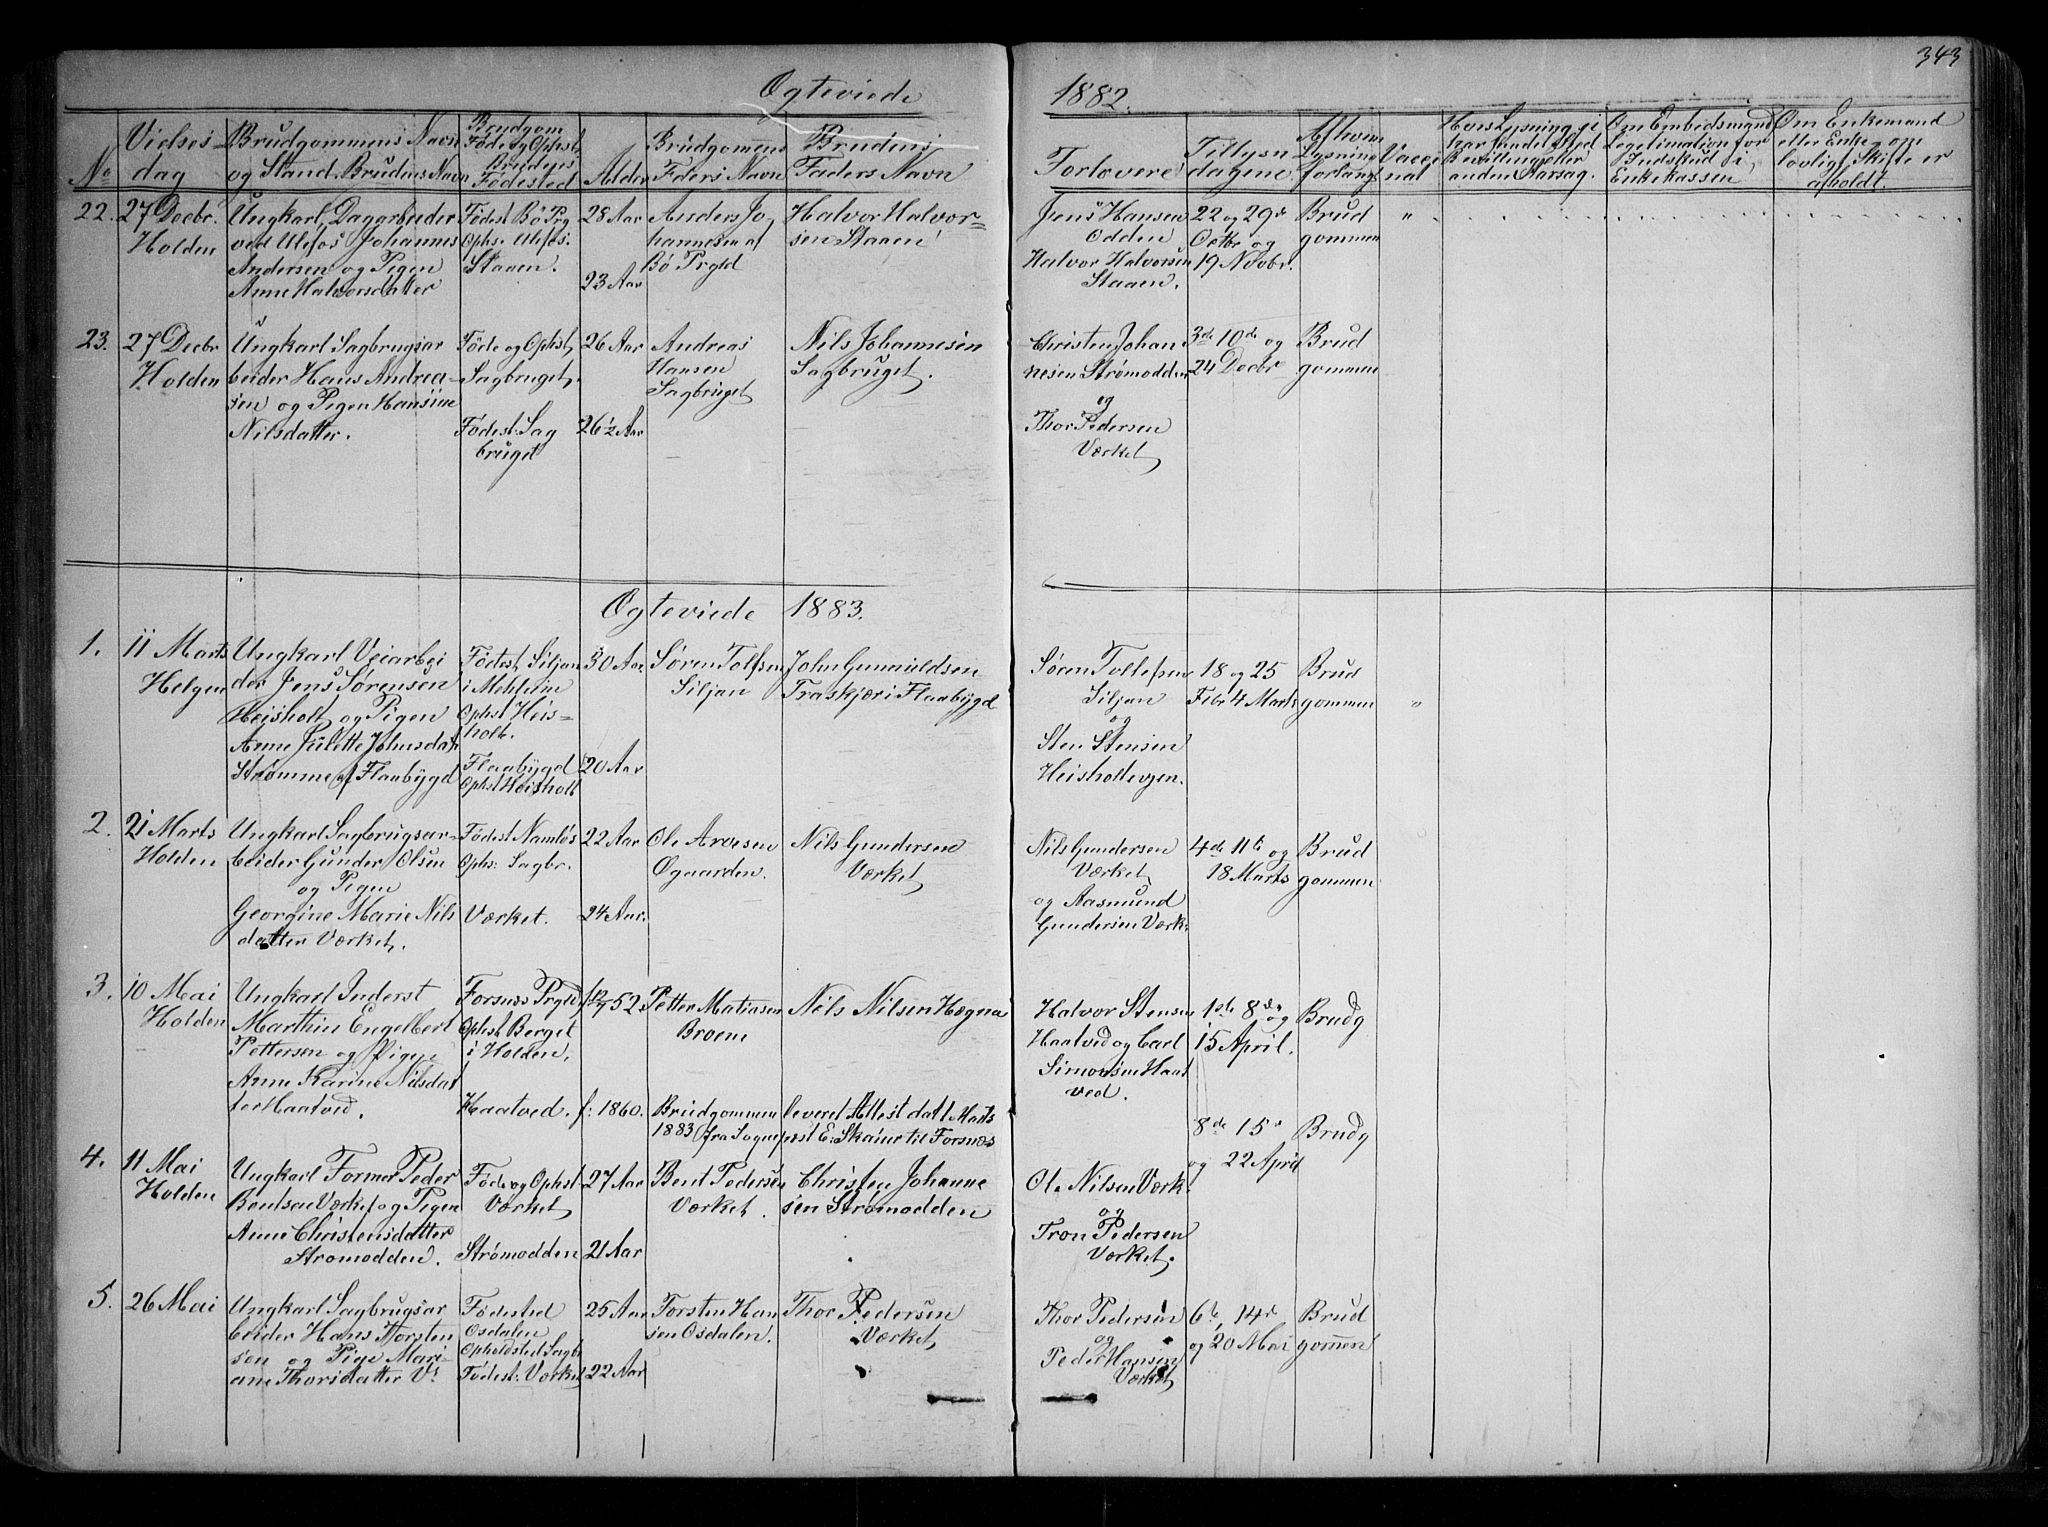 343
Ogteviede 1882.
No
Vielses-
dag
Brudgommens Navn
og Stand. Brudens Navn
Brudgom
Føde og Ophst
Brudens
Fødested
Alder
Brudgomens
Faders Navn
Brudens
Faders Navn
Forlovere
Tillysn
dagene
Af hvem
Lysning
forlangt
Vacci
nat
Hvis Lysning ei
har fundet Sted
Bevilling eller
anden Aarsag.
Om Embedsmand
Legetimation for
Indskud i
Enkekassen
Om Enkemand
eller Enke, om
lovligt Skifte er
afholdt.
22.
27 Decbr.
Holden
Ungkarl, Dagarbeider
ved Ulefos Johannes
Andersen og Pigen
Anne Halvorsdatter
Født Bø Prg
Ophs. Ulefos.
Staaen.
28 Aar
23 Aar
Anders Jo
hannesen af
Bø Prgld
Halvor Halvor-
sen Staaen
Jens Hansen
Odden
Halvor Halvorsen
Staaen.
22 og 29de
Octbr og
19 Novbr.
Brud
gommen
"
23.
27 Decbr
Holden
Ungkarl Sagbrugsar
beider Hans Andrea-
sen og Pigen Hansine
Nilsdatter.
Føde og Ophst,
Sagbruget,
Fødest. Sag
bruget
26 Aar
26 1/2 Aar
Andreas
Hansen
Sagbruget
Nils Johannesen
Sagbruget.
Christen Johan
nesen Strømodden
og
Thor Pedersen
Værket,
3de 10de og
24 Decbr
Brud
gommen
Ogteviede 1883.
1.
11 Marts
Helgen
Ungkarl Veiarbei
der Jens Sørensen
Heisholt og Pigen
Anne Julette Johnsdat.
Strømme af Flaabygd
Fødest, Siljan
i Mehleim
Ophst Heis-
holt.
Flaabygd
Ophst Heisholt
30 Aar
20 Aar
Søren Tolfsen
Siljan
John Gunnuldsen
Traskjær i Flaabygd
Søren Tollefsen
Siljan
og
Sten Stensen
Heisholteigen.
18 og 25
Febr 4 Marts
Brud
gommen
"
2.
21 Marts
Holden
Ungkarl Sagbrugsar-
beider Gunder Olsen
og Pigen
Georgine Marie Nils
datter Værket.
Fødest Namløs
Ophs: Sagbr.
Værket.
22 Aar
24 Aar.
Ole Arvesen
Øgaarden.
Nils Gundersen
Værket,
Nils Gundersen
Værket,
og Aasmund
Gundersen Værk.
4de 11te og
18 Marts
Brud
gommen
3.
10 Mai
Holden
Ungkarl Inderst
Marthin Engelbert
Pettersen og Pigen
Anne Karine Nilsdat
ter Haatved.
Forsnæs Prgld
Ophst Berget
i Holden,
Haatved.
52.
f: 1860.
Petter Matiasen
Broem
Nels Nilsen Hægna
Brudgommen leveret Attest dat 1 Marts
1883 fra Sognepræst E. Skaiur til Forsnæs
Halvor Stensen
Haatved og Carl
Simonsen Haat
ved.
1ste 8de og
15 April.
Brudg
4.
11 Mai
Holden
Ungkarl Former Peder
Bentsen Værket og Pigen
Anne Christensdatter
Strømodden.
Føde og Ophst
Værket
Strømodden
27 Aar
21 Aar
Bent Pedersen
Værket.
Christen Johanne
sen Strømodden
Ole Nilsen Værk.
og
Tron Pedersen
Værket.
8de 15de
og 22 April
Brudg
5.
26 Mai
Ungkarl Sagbrugsar
beider Hans Thorsten
sen og Pige Mari-
ane Thorsdatter V.
Fødested
Osdalen
Opholdsted Sagbr
Fødest: Værket
25 Aar
22 Aar
Torsten Han
sen Osdalen.
Thor Pedersen
Værket,
Thor Pedersen
og
Peder Hansen
Værket
6te, 14de
og 20 Mai
Brud
gommen